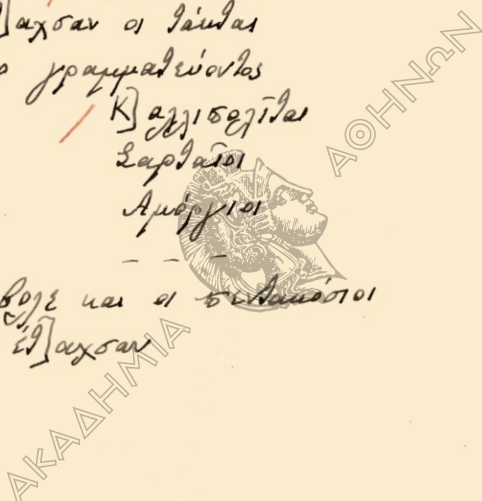 ]αχσαν οι τάκται
γραμματεύοντος
Κ]αλλιπολῖται
Σαρταῖοι
Ἀμόργιοι
– – –
βολε και οι πεντακόσιοι
ἐτ]αχσαν
ΑΚΑΔΗΜΙΑ
ΑΘΗΝΩΝ